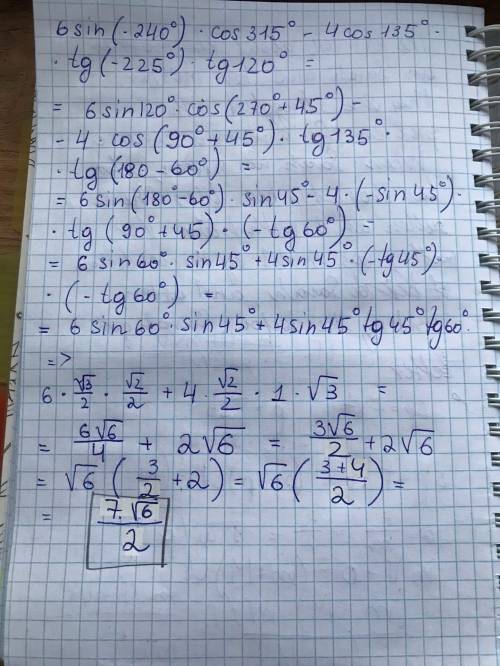 6 sin (-240°) · cos 315° - 4 cos 135° ·
· tg (-225°) · tg 120° =
= 6 sin 120° · cos (270° + 45°) -
- 4 · cos (90° + 45°) · tg 135° ·
· tg (180 - 60°) =
= 6 sin (180° - 60°) · sin 45° - 4 · (-sin 45°) ·
· tg (90° + 45) · (- tg 60°) =
= 6 sin 60° · sin 45° + 4 sin 45° · (- tg 45°) ·
· (- tg 60°) =
= 6 sin 60° · sin 45° + 4 sin 45° tg 45° tg 60°
=>
6 · √3/2 · √2/2 + 4 · √2/2 · 1 · √3 =
= 6√6/4 + 2√6 = 3√6/2 + 2√6
= √6 (3/2 + 2) = √6 ((3+4)/2) =
= 7·√6/2